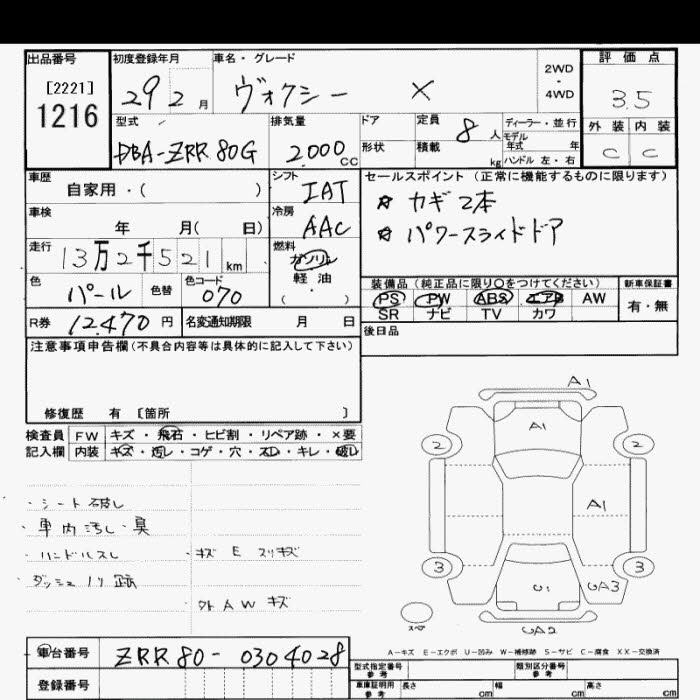 出品番号 初度登録年月 車名・グレード 2WD・4WD 評価点
[2221]
1216
29 2月 ヴォクシー X 3.5
型式 排気量 ドア 定員 8人 ディーラー・並行 外装 内装
形状 積載 kg モデル年式 年
DBA-ZRR80G 2.000cc ハンドル 左・右 C C
車歴 シフト セールスポイント(正常に機能するものに限ります)
自家用・( ) IAT ☆ カギ2本
車検 冷房
年 月( 日) AAC ☆ パワースライドドア
走行 燃料
13万2千521km ガソリン
軽油
( )
色 色替 色コード 装備品(純正品に限り○をつけてください) 新車保証書
パール 070 PS PW ABS エアB AW 有・無
SR ナビ TV カワ
R券 12.470円 名変通知期限 月 日
後日品
注意事項申告欄(不具合内容等は具体的に記入して下さい)
修復歴 有 [箇所 ]
検査員 FW キズ・飛石・ヒビ割・リペア跡・×要
記入欄 内装 キズ・汚レ・コゲ・穴・スレ・キレ・破レ
A1
A1
2 2
A1
3 3
U1 UA3
スペア
UA2
・シート破レ
・車内汚レ・臭
・ハンドルスレ ・キズ E スリキズ
ダッシュノリ跡
外AWキズ
A-キズ E-エクボ U-凹み W-補修跡 S-サビ C-腐食 XX-交換済
車台番号 ZRR80-0304028
登録番号
型式指定番号 参考 類別区分番号 参考
車庫証明用 参考 長さ cm 幅 cm 高さ cm